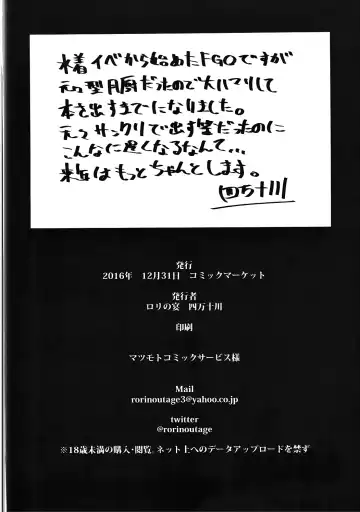 水着イベから始めたFGOですが
元々型月厨だったので大ハマりして
本を出すまでになりました。
元々サックリで出す筈だったのに
こんなに遅くなるなんて…
来年はもっとちゃんとします。
四万十川
発行
2016年 12月31日 コミックマーケット
発行者
ロリの宴 四万十川
印刷
マツモトコミックサービス様
Mail
rorinoutage3@yahoo.co.jp
twitter
@rorinoutage
※18歳未満の購入・閲覧。ネット上へのデータアップロードを禁ず